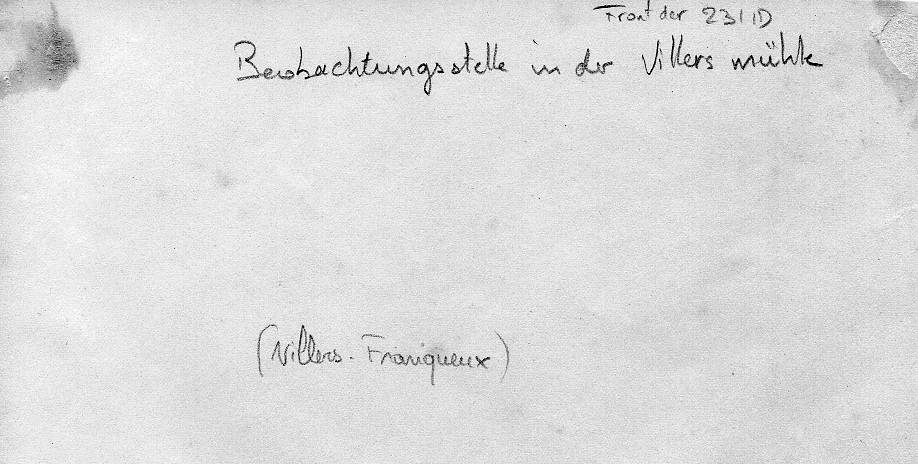 Front der 23 ID
Beobachtungsstelle in der Villers mühle
(Villers-Franqueux)